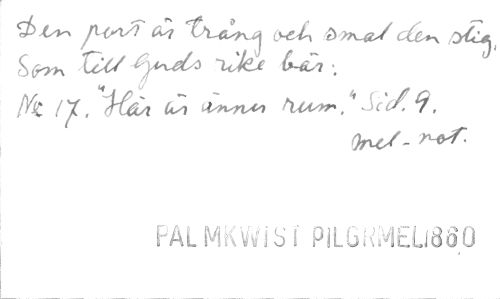 Den port är trång och smal den stig,
Som till Guds rike bär:
No 17. "Här är ännu rum." Sid. 9.
mel-not.
PALMKWIST PILGRMEL1860